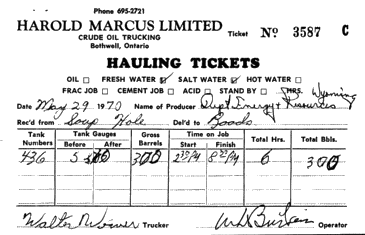 Phone 695-2721
HAROLD MARCUS LIMITED
CRUDE OIL TRUCKING
Bothwell, Ontario
Ticket Nº 3587 C
HAULING TICKETS
OIL ☐ FRESH WATER ☑ SALT WATER ☑ HOT WATER ☐
FRAC JOB ☐ CEMENT JOB ☐ ACID ☐ STAND BY ☐ HRS. Wyoming
Date May 29 1970 Name of Producer Dept Energy & Resources
Rec'd from Soup Hole Del'd to Roads
Tank Numbers Tank Gauges Before After Gross Barrels Time on Job Start Finish Total Hrs. Total Bbls.
436 300 6 300
Walter Trucker Operator